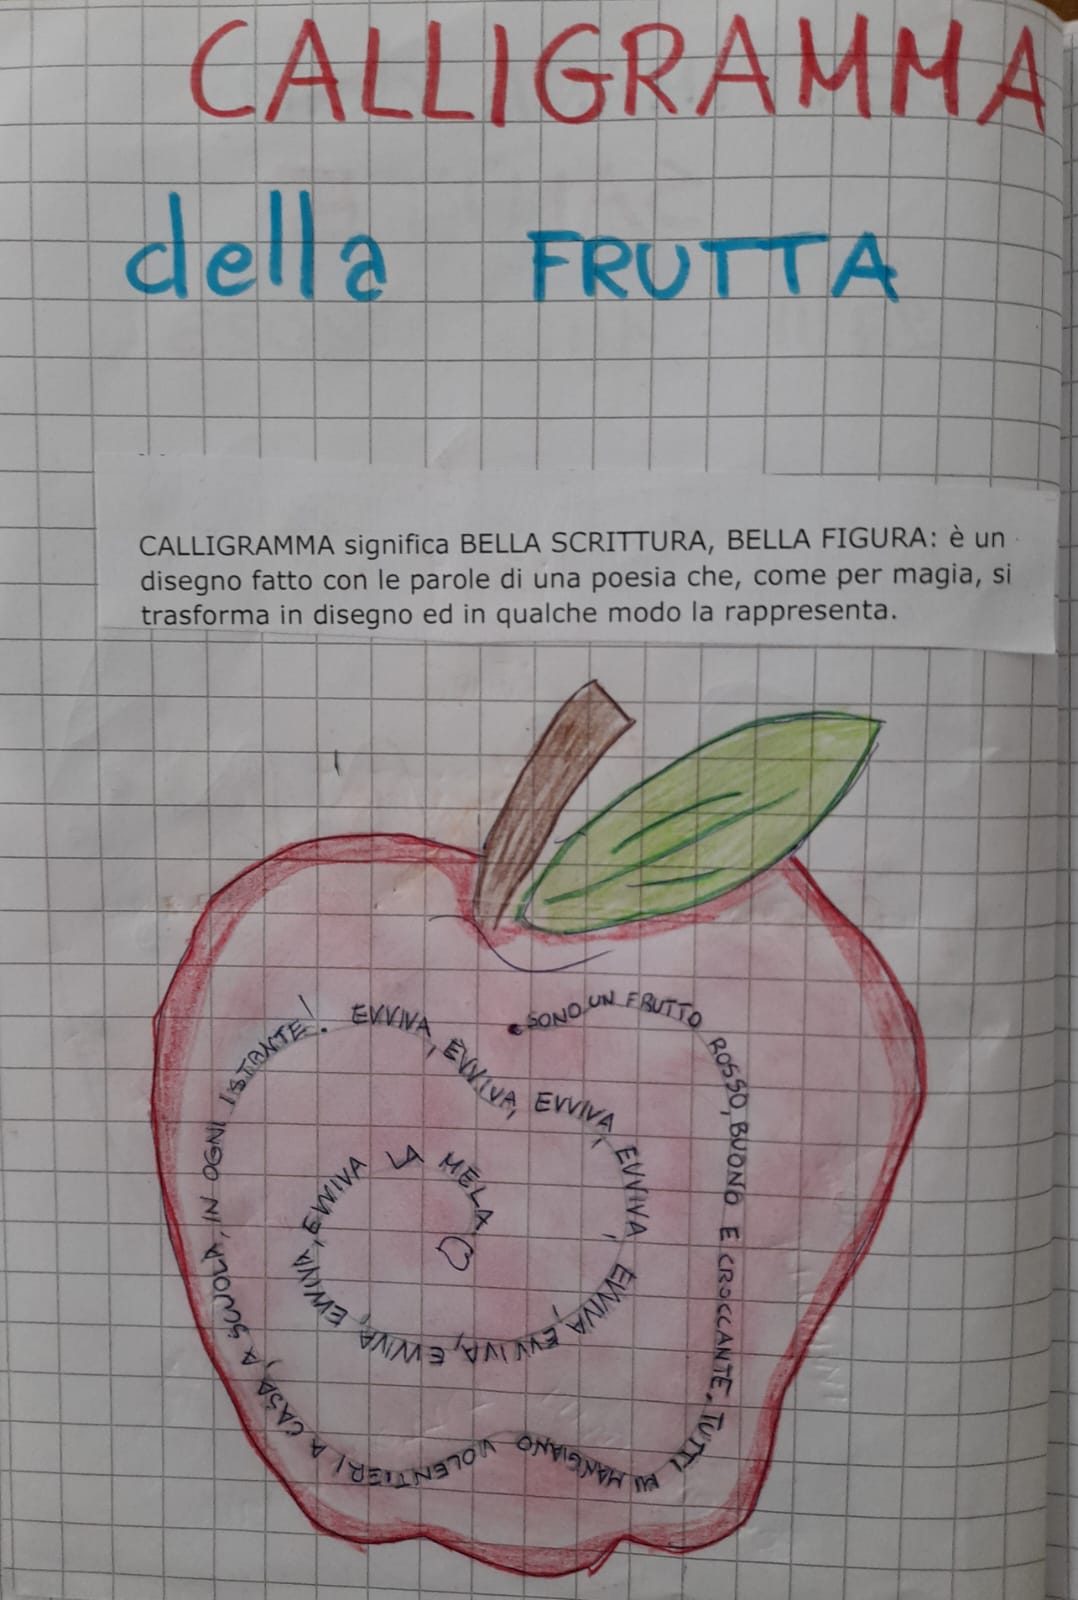 CALLIGRAMMA
della FRUTTA
CALLIGRAMMA significa BELLA SCRITTURA, BELLA FIGURA: è un
disegno fatto con le parole di una poesia che, come per magia, si
trasforma in disegno ed in qualche modo la rappresenta.
SONO UN FRUTTO ROSSO, BUONO E CROCCANTE. TUTTI MI MANGIANO VOLENTIERI A CASA, A SCUOLA, IN OGNI ISTANTE! EVVIVA, EVVIVA, EVVIVA, EVVIVA, EVVIVA, EVVIVA, EVVIVA, EVVIVA, EVVIVA, EVVIVA LA MELA